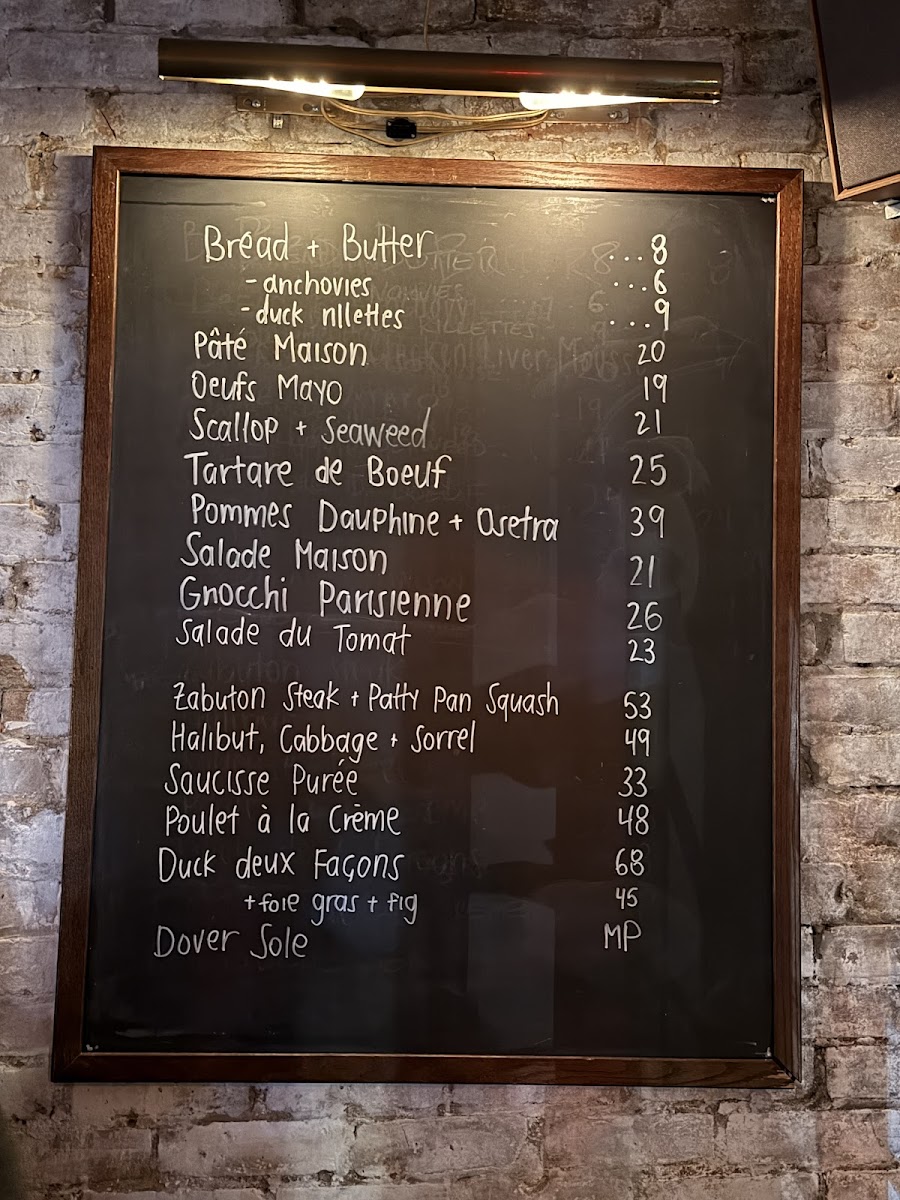 Bread + Butter ...8
- anchovies ...6
- duck rillettes ...9
Pâté Maison 20
Oeufs Mayo 19
Scallop + Seaweed 21
Tartare de Boeuf 25
Pommes Dauphine + Osetra 39
Salade Maison 21
Gnocchi Parisienne 26
Salade du Tomat 23
Zabuton Steak + Patty Pan Squash 53
Halibut, Cabbage + Sorrel 49
Saucisse Purée 33
Poulet à la Crème 48
Duck deux Façons 68
+ foie gras + fig 45
Dover Sole MP